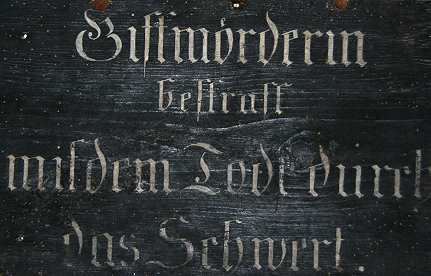 Giftmörderin
bestraft
mit dem Todt durch
das Schwert.